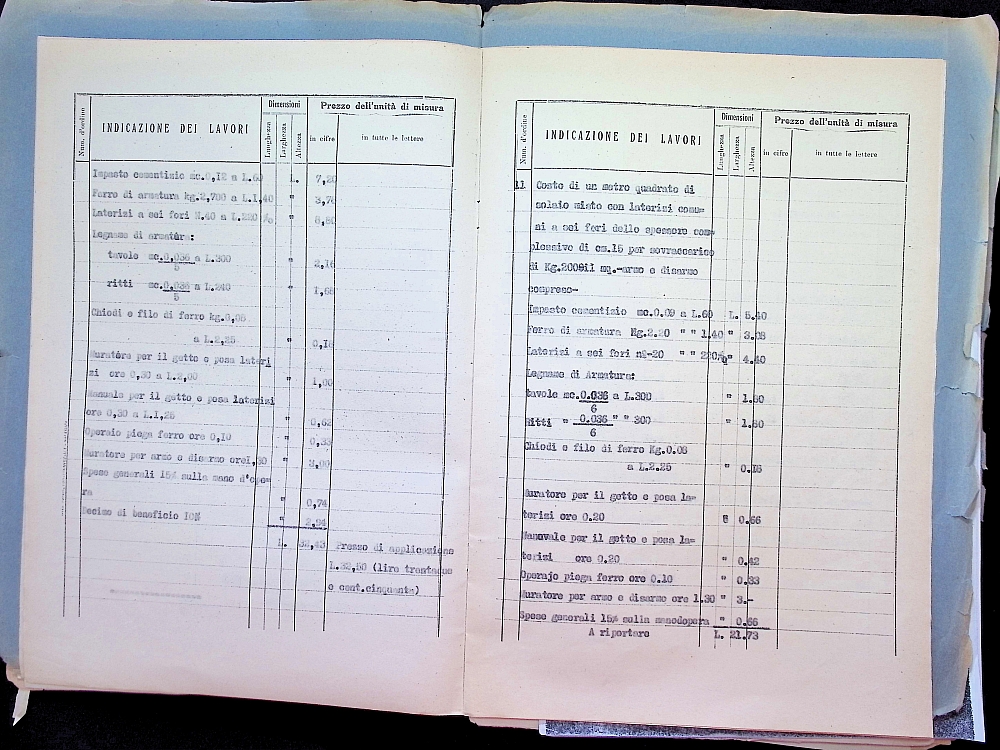 Num. d'ordine
INDICAZIONE DEI LAVORI
Dimensioni
Lunghezza
Larghezza
Altezza
Prezzo dell'unità di misura
in cifre
in tutte le lettere
Impasto cementizio mc.0,12 a L.60 L. 7,20
Ferro di armatura kg.2,700 a L.1,40 " 3,7
Laterizi a sei fori N.40 a L.220 % " 8,80
Legname di armatura:
tavole mc.0,036 a L.300 " 2,16
5
ritti mc.0,036 a L.240 " 1,6
5
Chiodi e filo di ferro kg.0,08
a L.2,25 " 0,18
Muratore per il getto e posa lateri
zi ore 0,30 a L.2,00 " 1,00
Manuale per il getto e posa laterizi
ore 0,30 a L.1,25 " 0,6
Operaio piega ferro ore 0,10 " 0,33
Muratore per armo e disarmo ore1,30 " 3,00
Spese generali 15% sulla mano d'ope=
ra " 0,74
Decimo di beneficio 10% " 2,94
L. 32,43 Prezzo di applicazione
L.32,50 (lire trentadue
e cent.cinquanta)
Num. d'ordine
INDICAZIONE DEI LAVORI
Dimensioni
Lunghezza
Larghezza
Altezza
Prezzo dell'unità di misura
in cifre
in tutte le lettere
11 Costo di un metro quadrato di
solaio misto con laterizi comu=
ni a sei fori dello spessore com=
plessivo di cm.15 per sovraccarico
di Kg.200 il mq.-armo e disarmo
compreso-
Impasto cementizio mc.0.09 a L.60 L. 5.40
Ferro di armatura Kg.2.20 " " 1.40 " 3.08
Laterizi a sei fori n°-20 " " 220% " 4.40
Legname di Armatura:
tavole mc.0.036 a L.300 " 1.80
6
Ritti " 0.036 " " 300 " 1.80
6
Chiodi e filo di ferro Kg.0.08
a L.2.25 " 0.18
Muratore per il getto e posa la=
terizi ore 0.20 " 0.66
Manovale per il getto e posa la=
terizi ore 0.20 " 0.42
Operajo piega ferro ore 0.10 " 0.33
Muratore per armo e disarmo ore 1.30 " 3.-
Spese generali 15% sulla manodopera " 0.66
A riportare L. 21.73